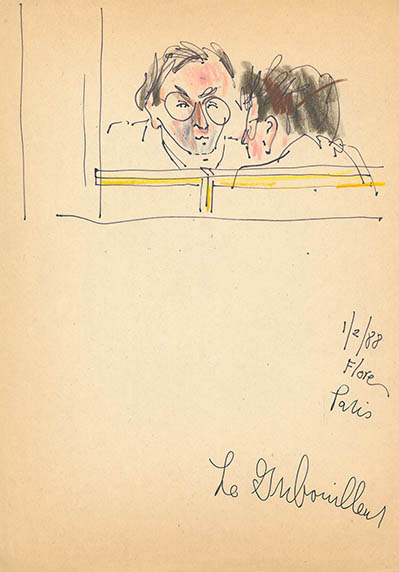 1/2/88
Flore
Paris
Le Gribouilleur